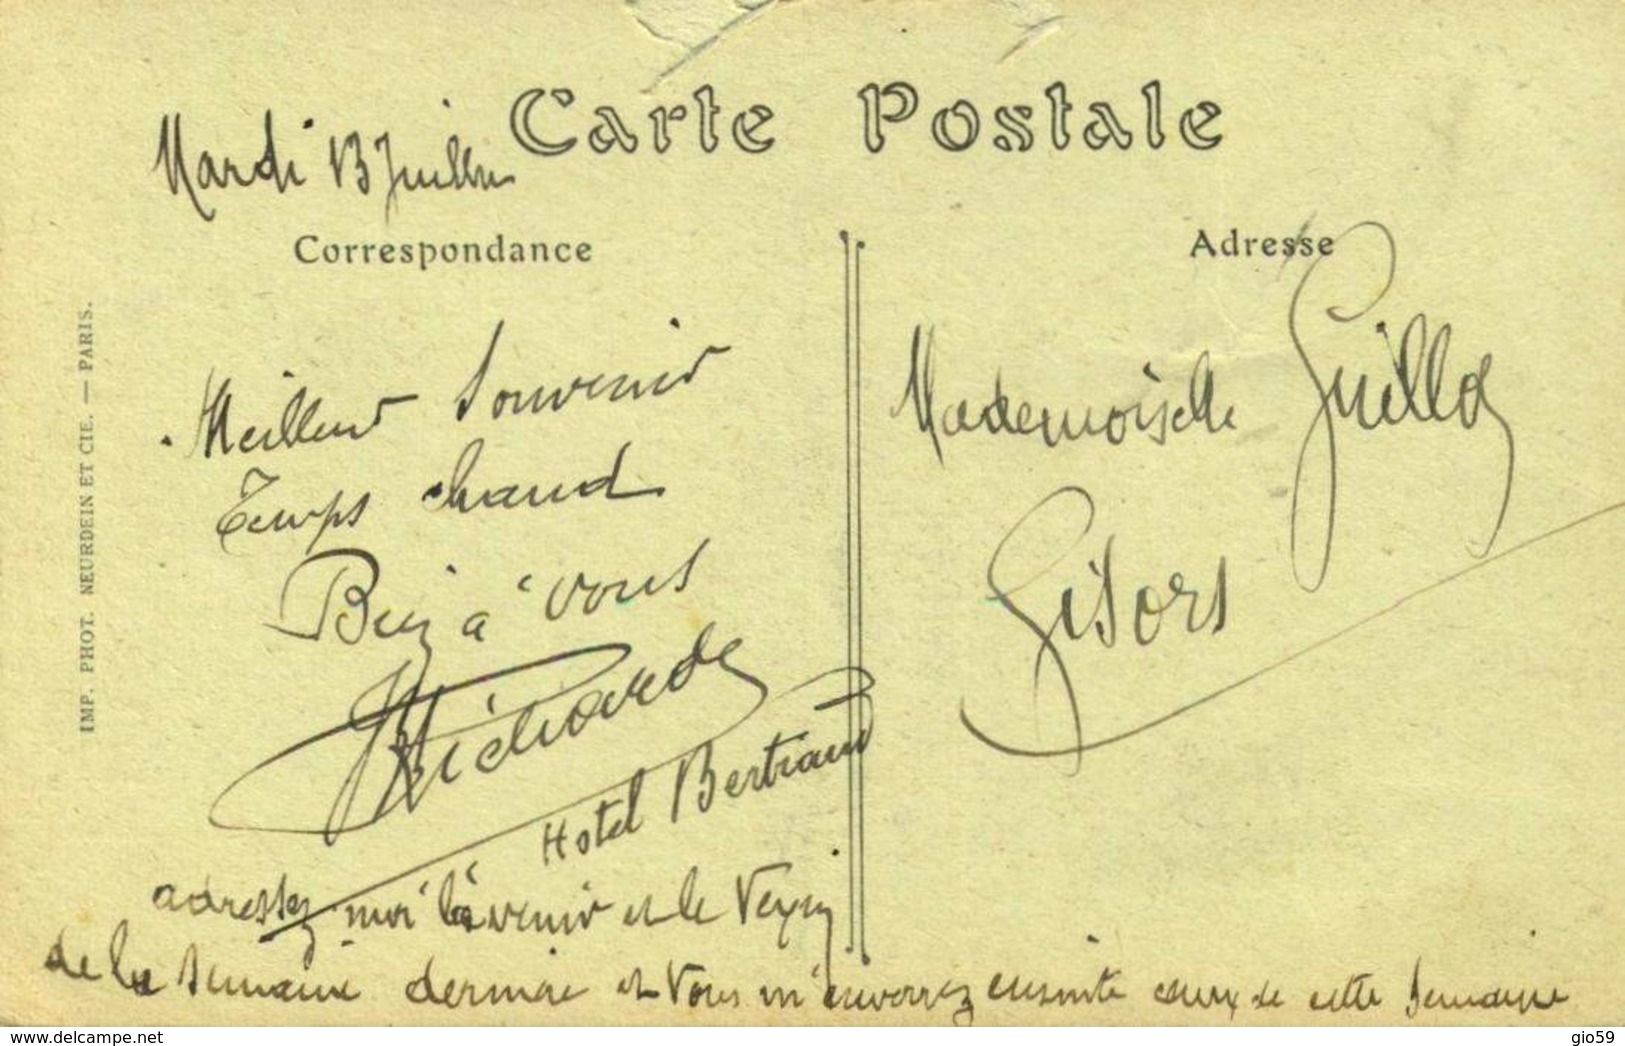 Carte Postale
Mardi 13 Juillet
Correspondance
Meilleur Souvenir
Temps chaud
Bien à vous
Richarde
Hotel Bertrand
adressez moi l'avenir et le Vexin
de la semaine dernière et vous m'enverrez ensuite ceux de cette semaine
Adresse
Mademoiselle Guillot
Gisors
IMP. PHOT. NEURDEIN ET CIE. — PARIS.
delcampe.net
gio59